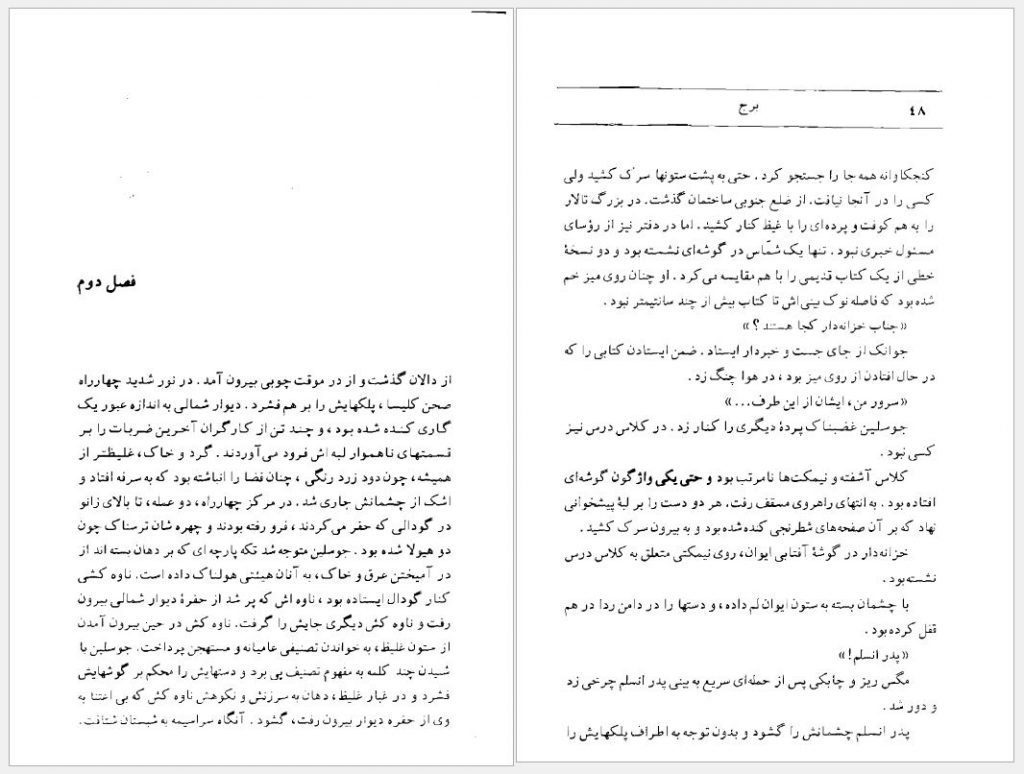 برج
٤٨
کنجکاوانه همه جا را جستجو کرد. حتی به پشت ستونها سرک کشید ولی
کسی را در آنجا نیافت. از ضلع جنوبی ساختمان گذشت. در بزرگ تالار
را به هم کوفت و پرده‌ای را با غیظ کنار کشید. اما در دفتر نیز از رؤسای
مسئول خبری نبود. تنها یک شمّاس در گوشه‌ای نشسته بود و دو نسخهٔ
خطی از یک کتاب قدیمی را با هم مقایسه می‌کرد. او چنان روی میز خم
شده بود که فاصله نوک بینی‌اش تا کتاب بیش از چند سانتیمتر نبود.
«جناب خزانه‌دار کجا هستند؟»
جوانک از جای جست و خبردار ایستاد. ضمن ایستادن کتابی را که
در حال افتادن از روی میز بود، در هوا چنگ زد.
«سرور من، ایشان از این طرف...»
جوسلین غضبناک پردهٔ دیگری را کنار زد. در کلاس درس نیز
کسی نبود.
کلاس آشفته و نیمکت‌ها نامرتب بود و حتی یکی واژگون گوشه‌ای
افتاده بود. به انتهای راهروی مسقف رفت، هر دو دست را بر لبهٔ پیشخوانی
نهاد که بر آن صفحه‌های شطرنجی کنده شده بود و به بیرون سرک کشید.
خزانه‌دار در گوشهٔ آفتابی ایوان، روی نیمکتی متعلق به کلاس درس
نشسته بود.
با چشمان بسته به ستون ایوان لم داده، و دستها را در دامن ردا در هم
قفل کرده بود.
«پدر انسلم!»
مگس ریز و چابکی پس از حمله‌ای سریع به بینی پدر انسلم چرخی زد
و دور شد.
پدر انسلم چشمانش را گشود و بدون توجه به اطراف پلکهایش را
فصل دوم
از دالان گذشت و از در موقت چوبی بیرون آمد. در نور شدید چهارراه
صحن کلیسا، پلکهایش را بر هم فشرد. دیوار شمالی به اندازه عبور یک
گاری کنده شده بود، و چند تن از کارگران آخرین ضربات را بر
قسمتهای ناهموار لبه اش فرود می‌آوردند. گرد و خاک، غلیظتر از
همیشه، چون دود زرد رنگی، چنان فضا را انباشته بود که به سرفه افتاد و
اشک از چشمانش جاری شد. در مرکز چهارراه، دو عمله، تا بالای زانو
در گودالی که حفر می‌کردند، فرو رفته بودند و چهره شان ترسناک چون
دو هیولا شده بود. جوسلین متوجه شد تکه پارچه ای که بر دهان بسته اند از
در آمیختن عرق و خاک، به آنان هیئتی هولناک داده است. ناوه کشی
کنار گودال ایستاده بود، ناوه اش که پر شد از حفرهٔ دیوار شمالی بیرون
رفت و ناوه کش دیگری جایش را گرفت. ناوه کش در حین بیرون آمدن
از ستون غلیظ، به خواندن تصنیفی عامیانه و مستهجن پرداخت. جوسلین با
شنیدن چند کلمه به مفهوم تصنیف پی برد و دستهایش را محکم بر گوشهایش
فشرد و در غبار غلیظ، دهان به سرزنش و نکوهش ناوه کش که بی اعتنا به
وی از حفره دیوار بیرون رفت، گشود. آنگاه سراسیمه به شبستان شتافت.